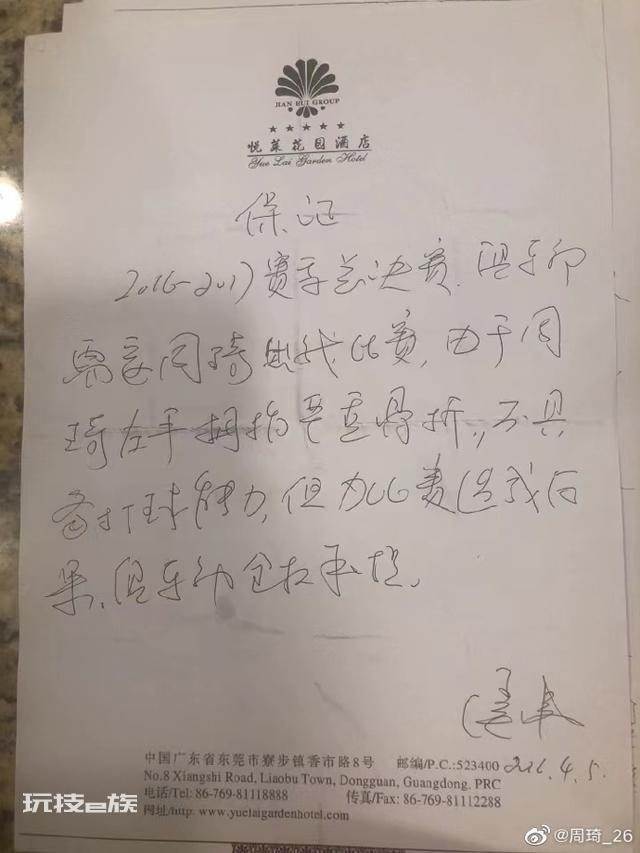 JIAN HUI GROUP
★★★★★
悦莱花园酒店
Yue Lai Garden Hotel
保证
2016-2017赛季总决赛.俱乐部
需要周琦出战比赛,由于周
琦左手拇指严重骨折,不具
备打球能力,但为比赛造成后
果,俱乐部全权承担.
2016.4.5.
中国广东省东莞市寮步镇香市路8号 邮编/P.C:523400
No.8 Xiangshi Road, Liaobu Town, Dongguan, Guangdong. PRC
电话/Tel: 86-769-81118888 传真/Fax: 86-769-81112288
网址/http: www.yuelaigardenhotel.com
玩技e族
@周琦_26